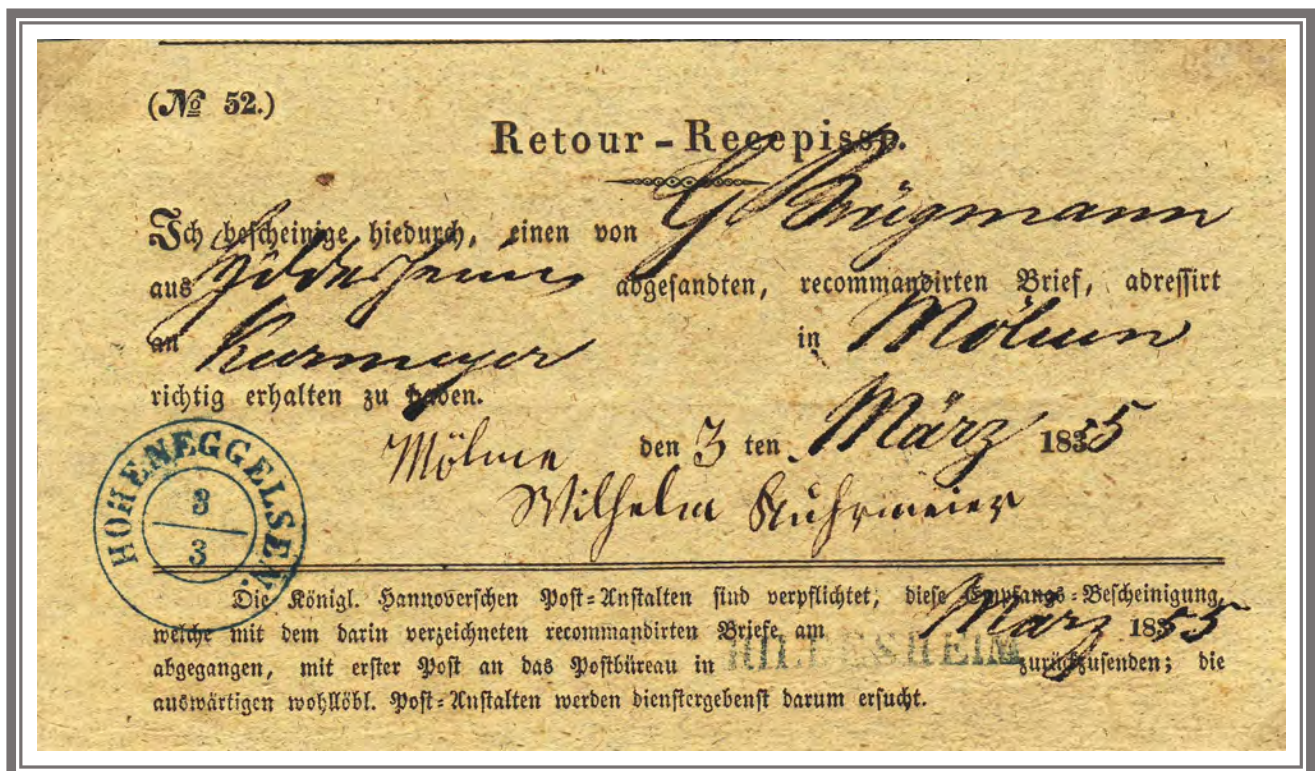 (№ 52.)
Retour-Recepisse.
Ich bescheinige hiedurch, einen von G Brügmann
aus Hildesheim abgesandten, recommandirten Brief, adressirt
an Kurmeyer in Mölmen
richtig erhalten zu haben.
Mölme den 3 ten März 1855
Wilhelm Kuhrmeier
HOHENEGGELSEN.
8
3
Die Königl. Hannoverschen Post-Anstalten sind verpflichtet, diese Empfangs-Bescheinigung,
welche mit dem darin verzeichneten recommandirten Briefe am März 1855
abgegangen, mit erster Post an das Postbüreau in HILDESHEIM zurückzusenden; die
auswärtigen wohllöbl. Post-Anstalten werden dienstergebenst darum ersucht.